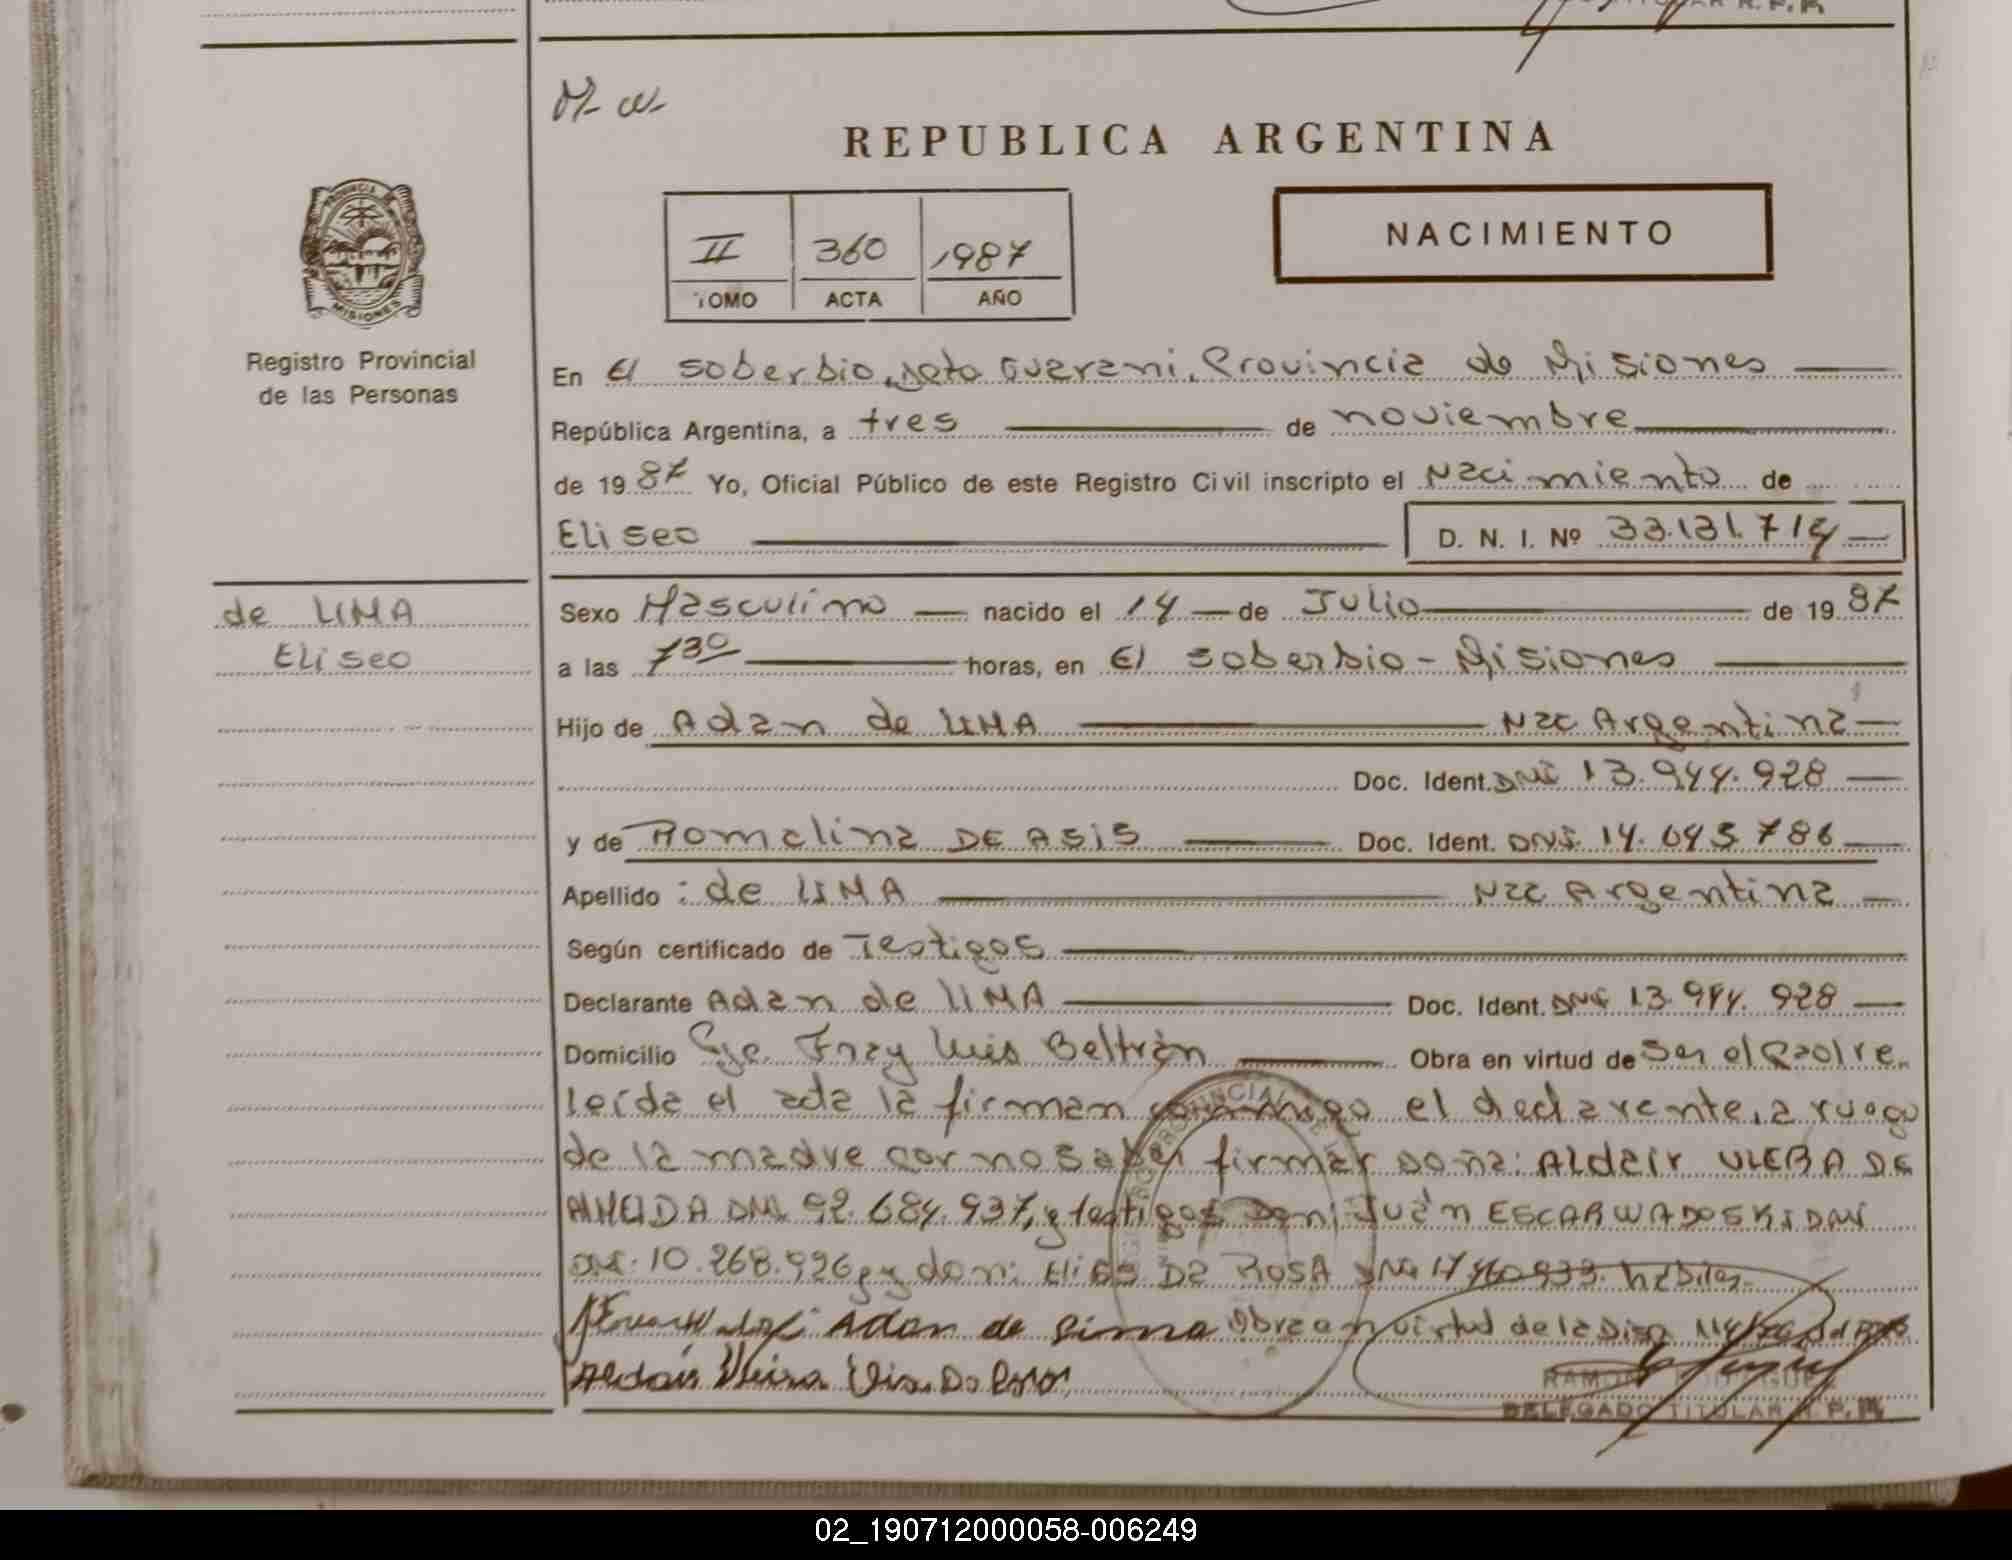 REPUBLICA ARGENTINA
PROVINCIA DE
MISIONES
Registro Provincial
de las Personas
II 360 1987
TOMO ACTA AÑO
NACIMIENTO
En El Soberbio, Dpto Guarani, Provincia de Misiones
República Argentina, a tres de noviembre
de 1987 Yo, Oficial Público de este Registro Civil inscripto el Nacimiento de
Eliseo D. N. I. Nº 33.131.714
de LIMA
Eliseo
Sexo Masculino nacido el 14 de Julio de 1987
a las 7 30 horas, en El Soberbio - Misiones
Hijo de Adan de LIMA Nac Argentina
Doc. Ident. DNI 13.944.928
y de Romalina DE ASIS Doc. Ident. DNI. 14.645.786
Apellido : de LIMA Nac Argentina
Según certificado de Testigos
Declarante Adan de LIMA Doc. Ident. DNI 13.944.928
Domicilio Pje. Fray Luis Beltrán Obra en virtud de Ser el Padre.
leída el acta la firman conmigo el declarante, a ruego
de la madre por no saber firmar Doña: Aldair VIEIRA DE
ALMEIDA DNI 92.684.937, y testigos Don: Juan
DNI: 10.268.926, y don: Elias DA ROSA DNI 17.460.933. hábiles.
Adan de Lima Obra en virtud de la Disp.
Aldair Vieira Elias Da Rosa
RAMON RODRIGUEZ
DELEGADO TITULAR R. P. P.
02_190712000058-006249